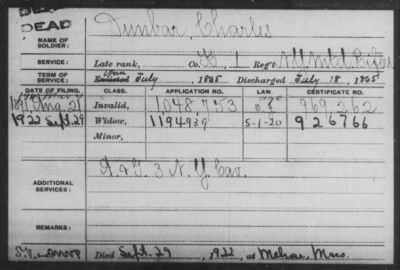 DEAD
DEAD
NAME OF SOLDIER: Dunbar, Charles
SERVICE: Late rank, Co. K, 1 Reg't N.Y. Mtd. Rifles
TERM OF SERVICE: Enlisted July , 1865 Discharged July 18, 1865
DATE OF FILING. CLASS. APPLICATION NO. LAW. CERTIFICATE NO.
Aug. 21 Invalid, 1048753 969262
1922 Sept. 29 Widow, 1194939 5-1-20 926766
Minor,
ADDITIONAL SERVICES: A & G. 3 N.Y. Cav.
REMARKS:
Died Sept. 29, 1922, at Melrose, Mass.